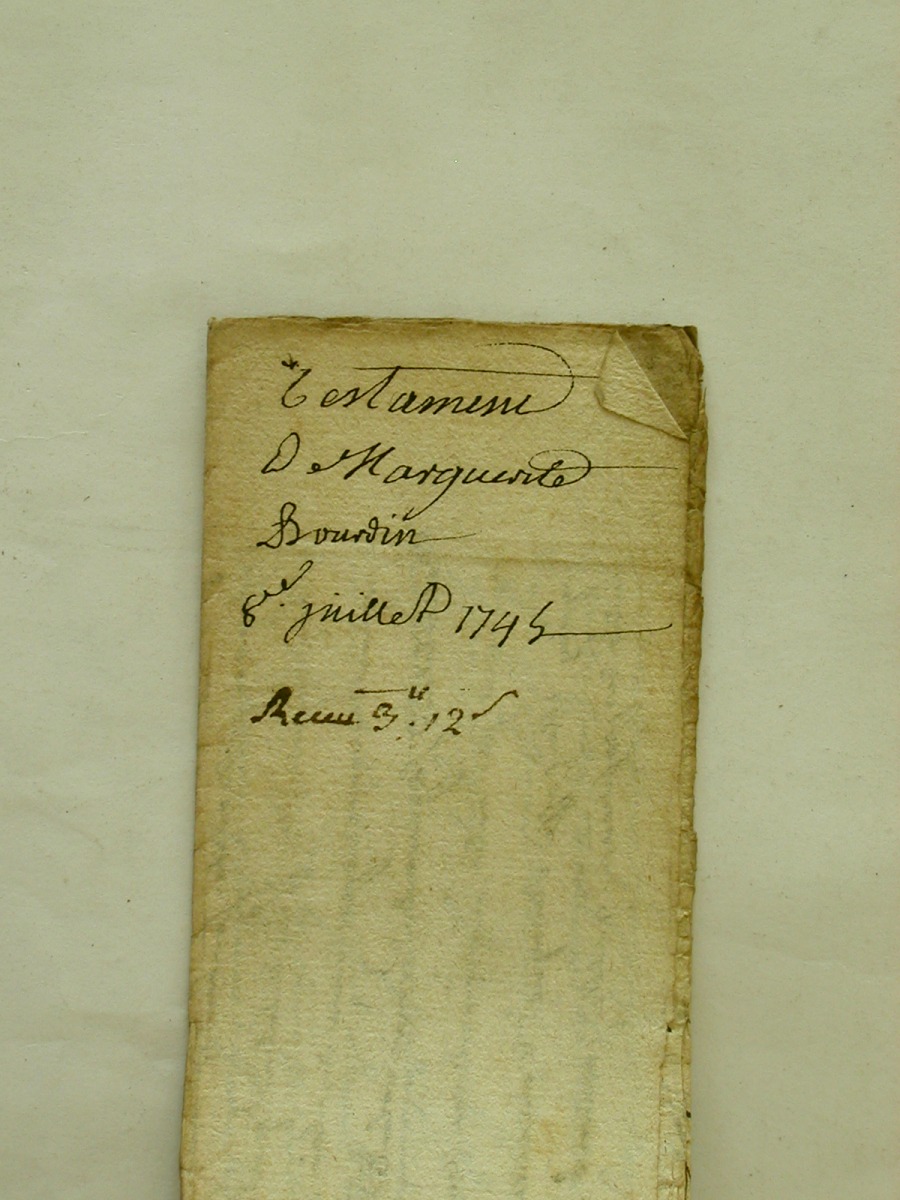 Testament
De Marguerite
Bourdin
8me. juillet 1745
Receu 3ll. 12s